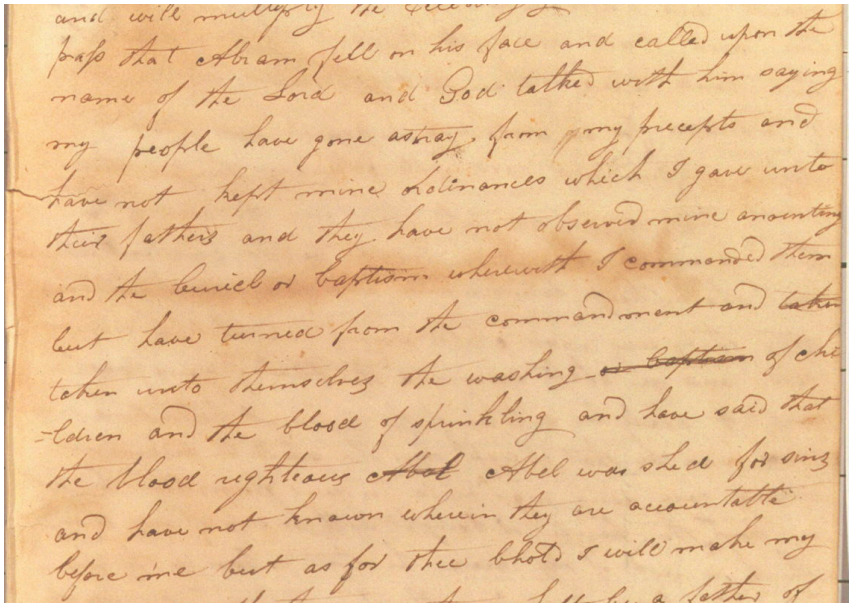 and will multiply the
pass that Abram fell on his face and called upon the
name of the Lord and God talked with him saying
my people have gone astray from my precepts and
have not kept mine ordinances which I gave unto
their fathers and they have not observed mine anointing
and the buriel or baptism wherewith I commanded them
but have turned from the commandment and taken
taken unto themselves the washing or baptism of chi
=ldren and the blood of sprinkling and have said that
the blood righteous Abal Abel was shed for sins
and have not known wherein they are accountable
before me but as for thee bhold I will make my
a father of